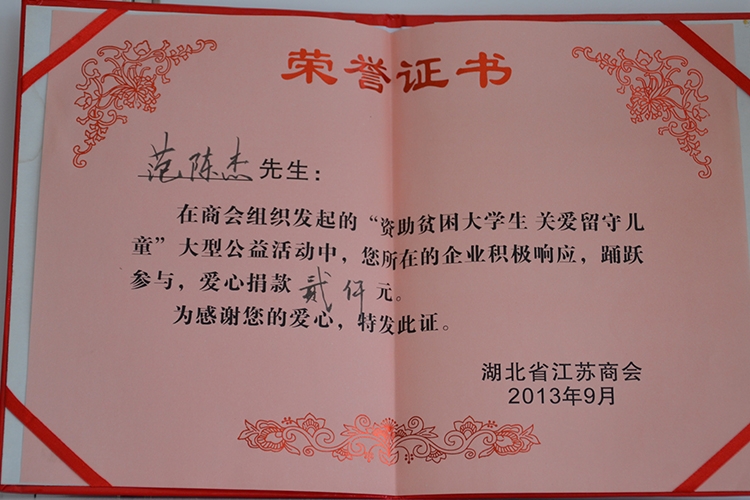 荣誉证书
范陈杰先生：
在商会组织发起的“资助贫困大学生 关爱留守儿
童”大型公益活动中，您所在的企业积极响应，踊跃
参与，爱心捐款贰仟元。
为感谢您的爱心，特发此证。
湖北省江苏商会
2013年9月